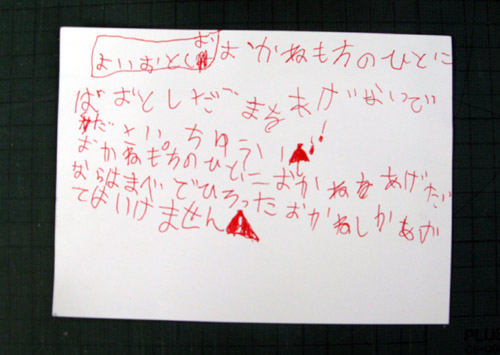 よいおとし おかねもちのひとに
ばおとしだまをあげないで
ください。ちゅうい!!
おかねもちのひとにおかねをあげた
ならはまべでひろったおかねしかあげ
てはいけません